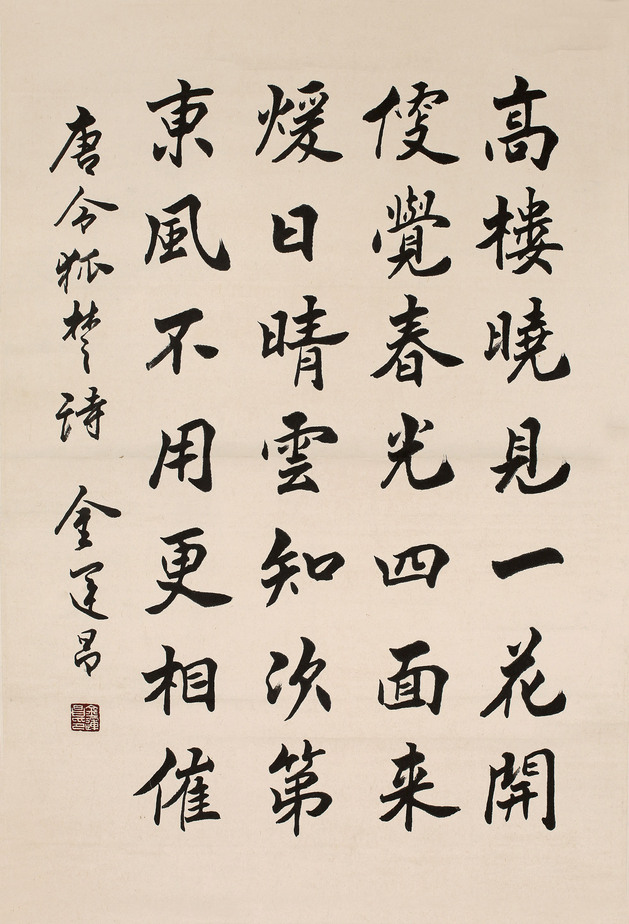 高樓曉見一花開
便覺春光四面来
煖日晴雲知次第
東風不用更相催
唐令狐楚詩 金運昌